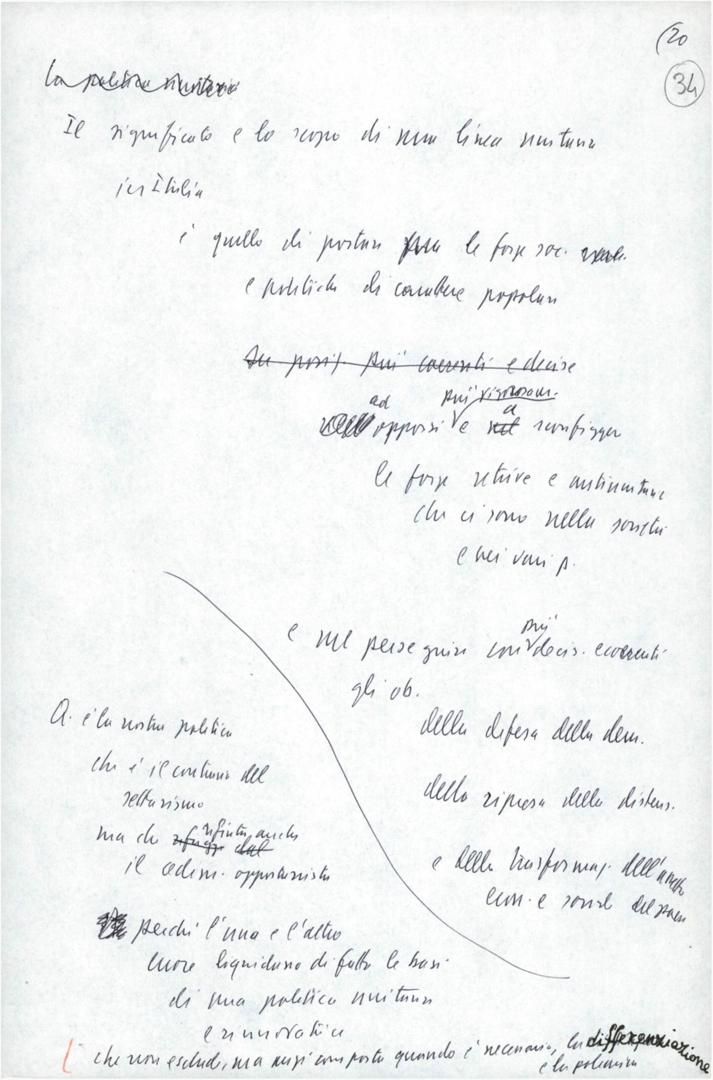 (20
34
La politica unitaria
Il significato e lo scopo di una linea unitaria
in Italia
è quello di portare le forze soc.
e politiche di carattere popolare
su posiz. più coerenti e decise
ad più rigorosam.
opporsi e a sconfiggere
le forze retrive e antiunitarie
che ci sono nella società
e nei vari p.
e nel perseguire con più decis. e coerenti
gli ob.
della difesa della dem.
della ripresa della distens.
e della trasformaz. dell'assetto
econ. e sociale del paese
Q. è la nostra politica
che è il contrario del
settarismo
ma che rifiuta anche
il cedim. opportunista
perché l'una e l'altro
liquidano di fatto le basi
di una politica unitaria
e rinnovatrice
che non esclude, ma anzi comporta quando è necessario, la differenziazione
e la polemica